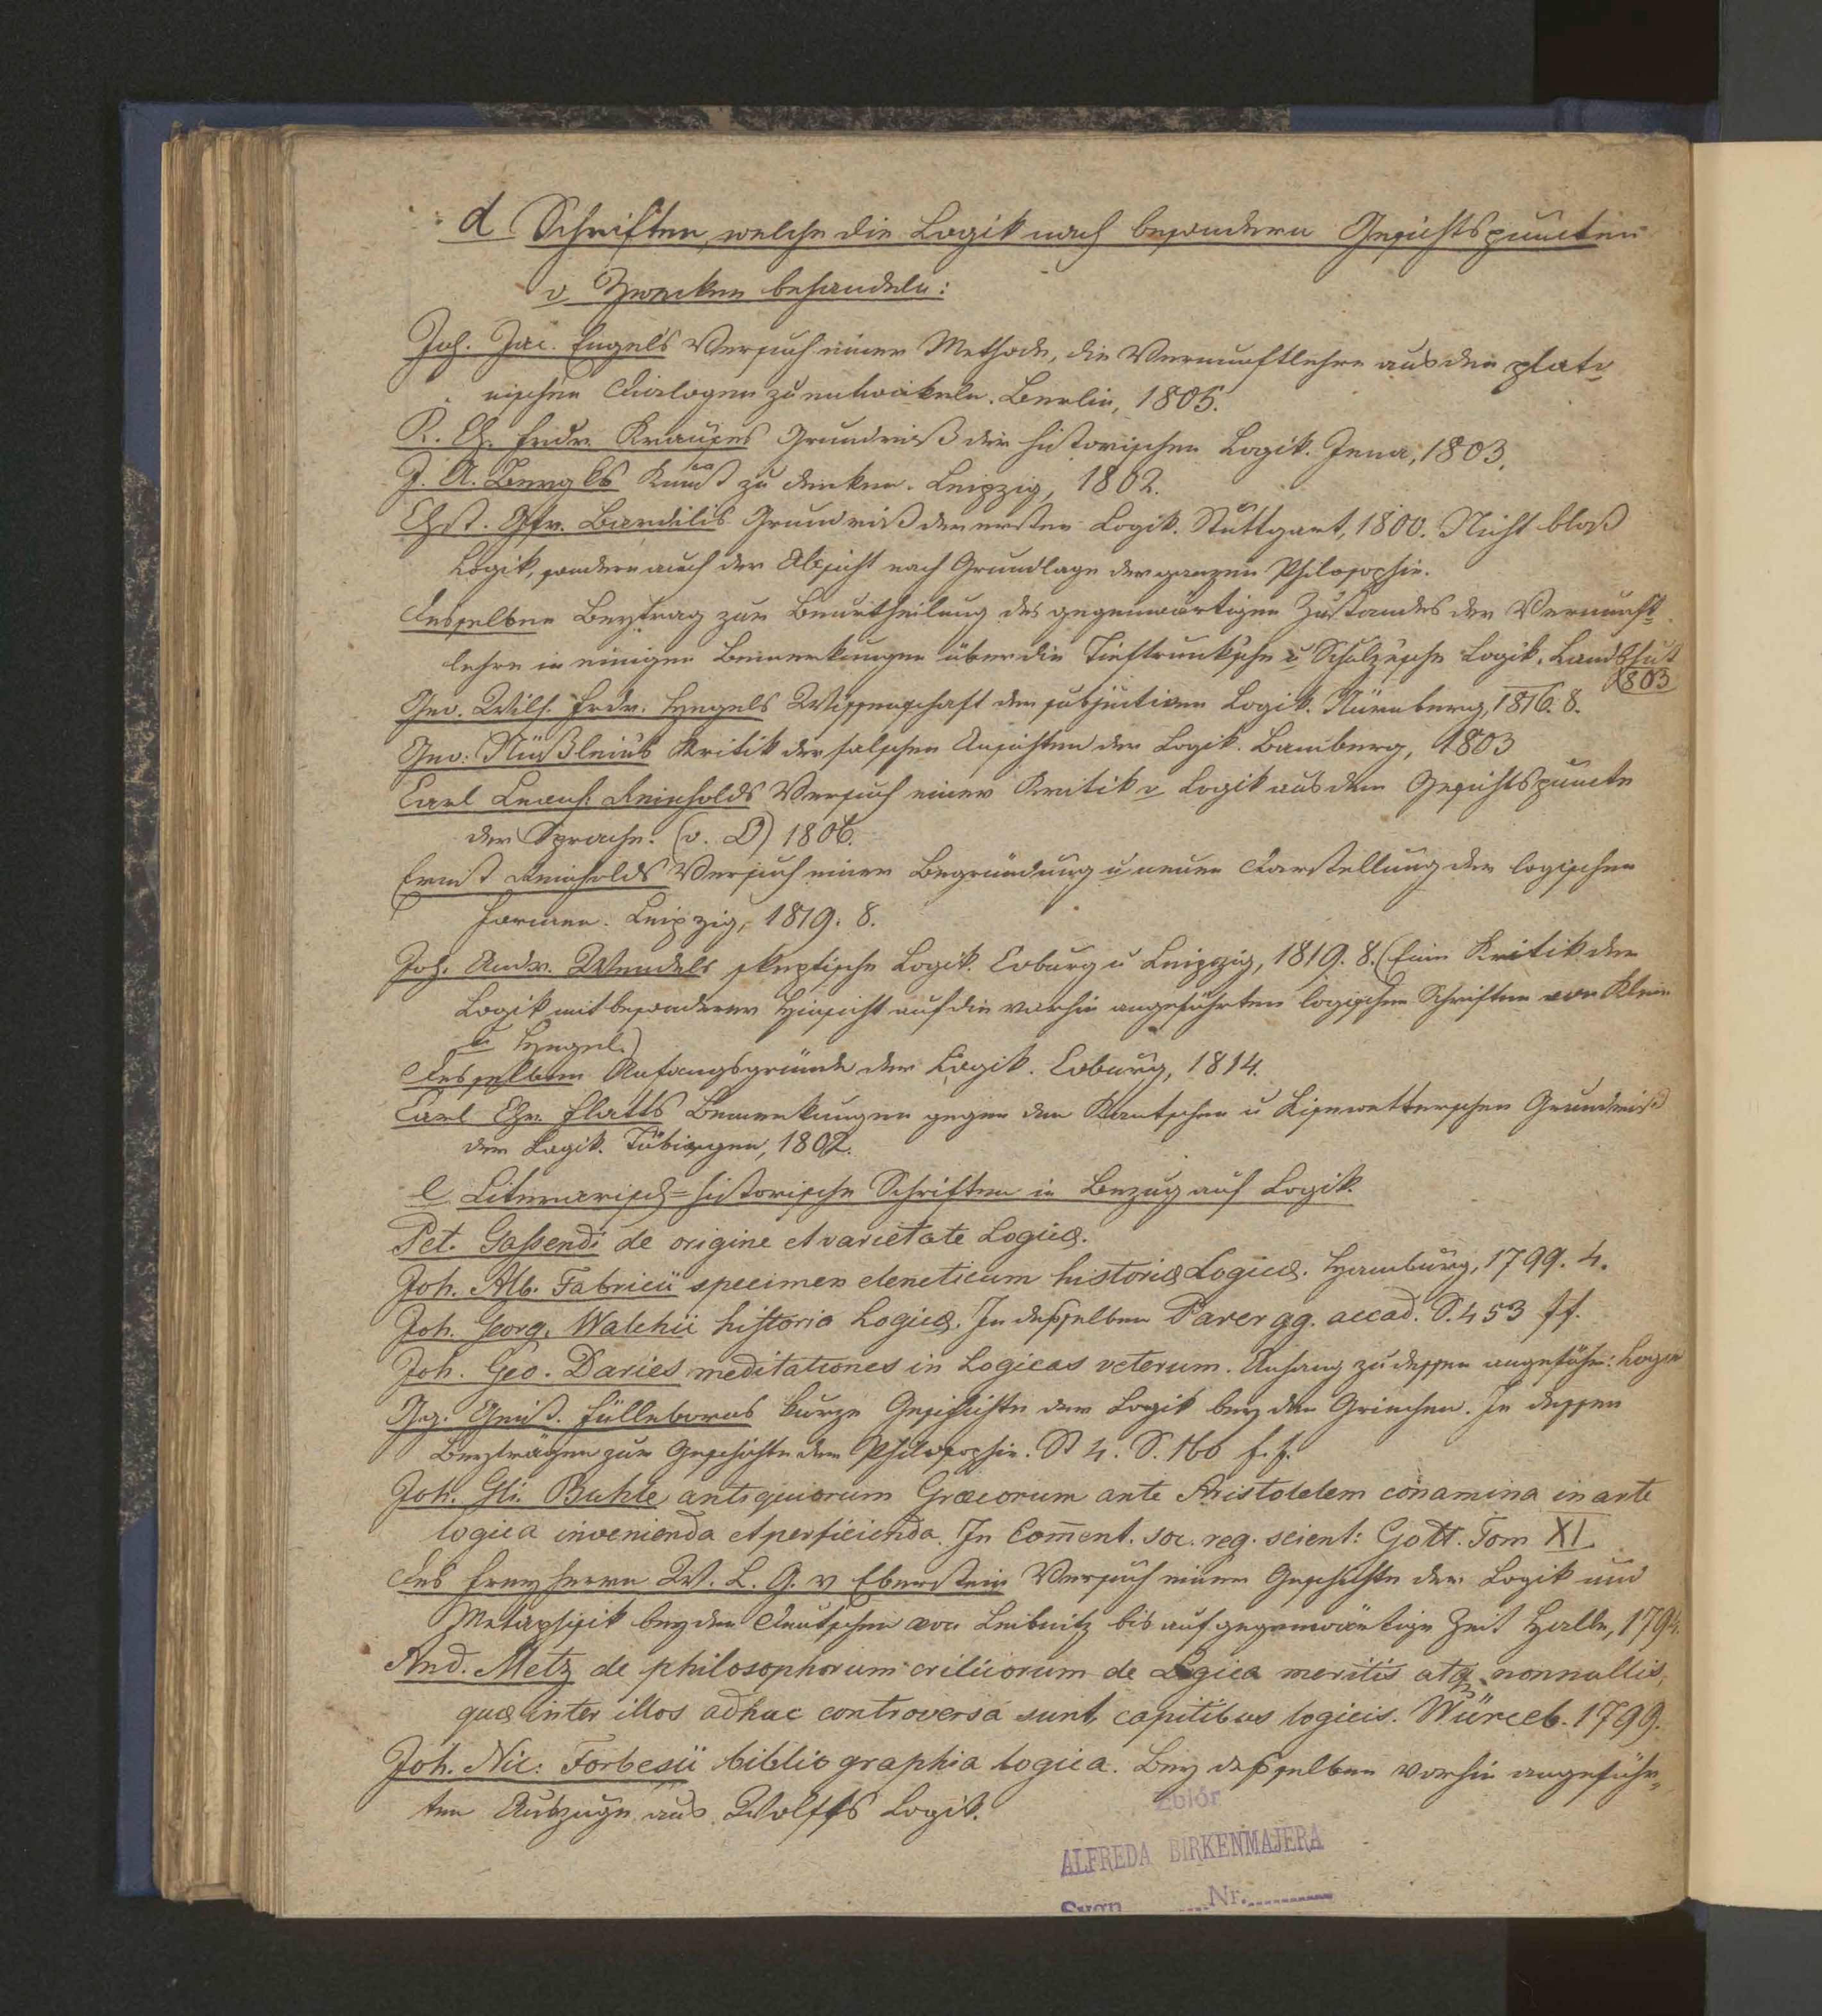 d Schriften, welche die Logik nach besondern Gesichtspuncten
u Zwecken behandeln:
Joh. Jac. Engels Versuch einer Methode, die Vernunftlehre aus den plato
nischen Dialogen zu entwickeln. Berlin, 1805.
K. Ch. Fridr. Krauses Grundriß der historischen Logik. Jena, 1803.
J. A. Bergks Kunst zu denken. Leipzig, 1802.
Chst. Gfr. Bardilis Grundriß der ersten Logik. Stuttgart, 1800. Nicht bloß
Logik, sondern auch der Absicht nach Grundlage der ganzen Philosophie.
Desselben Beytrag zur Beurtheilung des gegenwärtigen Zustandes der Vernunft
lehre in einigen Bemerkungen über die Tieftrunksche u Schulzesche Logik. Landshut
1803
Geo. Wilh. Frdr. Hegels Wissenschaft der subjectiven Logik. Nürnberg, 1816. 8.
Geo. Nüßleins Kritik der falschen Ansichten der Logik. Bamberg, 1803
Carl Leonh. Reinholds Versuch einer Kritik d Logik aus dem Gesichtspuncte
der Sprache. (o. O) 1806.
Ernst Reinholds Versuch einer Begründung u neuen Darstellung der logischen
Formen. Leipzig, 1819. 8.
Joh. Andr. Wendels skeptische Logik. Coburg u Leipzig, 1819. 8. (Eine Kritik der
Logik mit besonderer Hinsicht auf die vorhin angeführten logischen Schriften von Klein
u Hegel.)
Desselben Anfangsgründe der Logik. Coburg, 1814.
Carl Chr. Flatts Bemerkungen gegen den Kantschen u Kisewetterschen Grundriß
der Logik. Tübingen, 1802.
e Literarisch=historische Schriften in Bezug auf Logik.
Pet. Gassendi de origine et varietate Logicæ.
Joh. Alb. Fabricii specimen elencticum historiæ Logicæ. Hamburg, 1799. 4.
Joh. Georg. Walchii historia Logicæ. In desselben Parergg. accad. S. 453 ff.
Joh. Geo. Daries meditationes in Logicas veterum. Anhang zu dessen angeführ: Logik
Geo. Gust. Fülleborns kurze Geschichte der Logik bey den Griechen. In dessen
Beyträgen zur Geschichte der Philosophie. St 4. S. 160 f. f.
Joh. Gli. Buhle antiquiorum Græcorum ante Aristotelem conamina in arte
logica invenienda et perficienda. In Com̄ent. soc. reg. scient: Gott. Tom XI.
Des Freyherrn W. L. G. v Eberstein Versuch einer Geschichte der Logik und
Metaphysik bey den Deutschen von Leibnitz bis auf gegenwärtige Zeit Halle, 1794.
And. Metz de philosophorum criticorum de Logica meritis atq nonnullis,
quæ inter illos adhuc controversa sunt, capitibus logicis. Würceb. 1799.
Joh. Nic: Forbesii bibliographia logica. Bey desselben vorhin angeführ=
ten Auszuge aus Wolffs Logik.
Zbiór
ALFREDA BIRKENMAJERA
Sygn........Nr...........